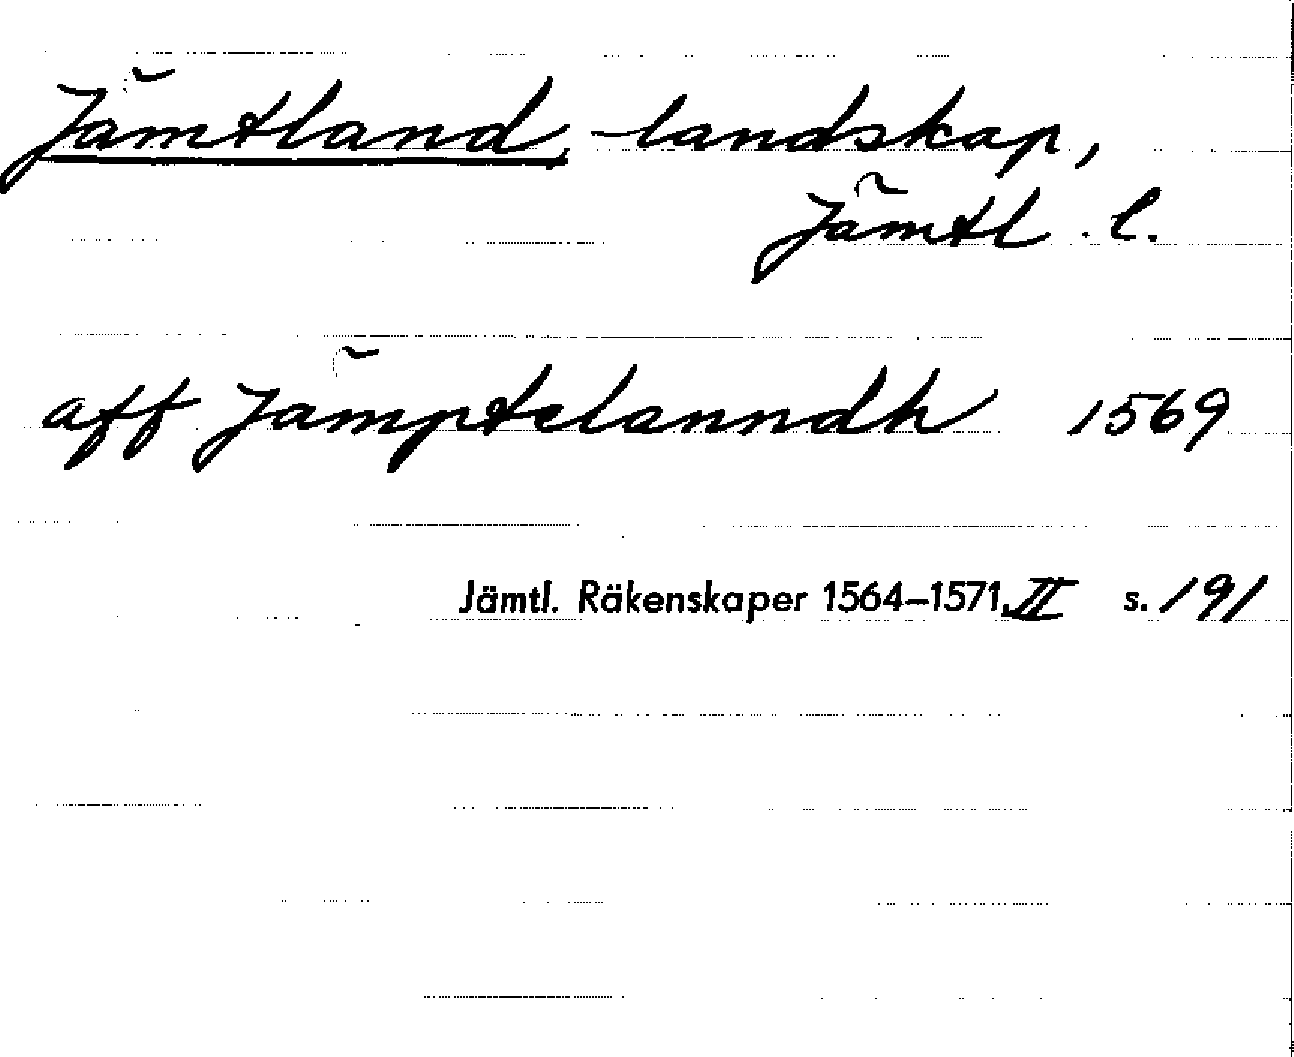 Jämtland, landskap,
Jämtl. l.
aff Jämptelanndh 1569
Jämtl. Räkenskaper 1564–1571, II s. 191